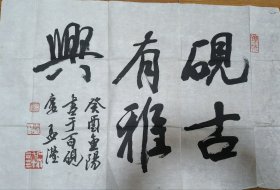 硯古
有雅
興
癸酉重陽
書于百硯